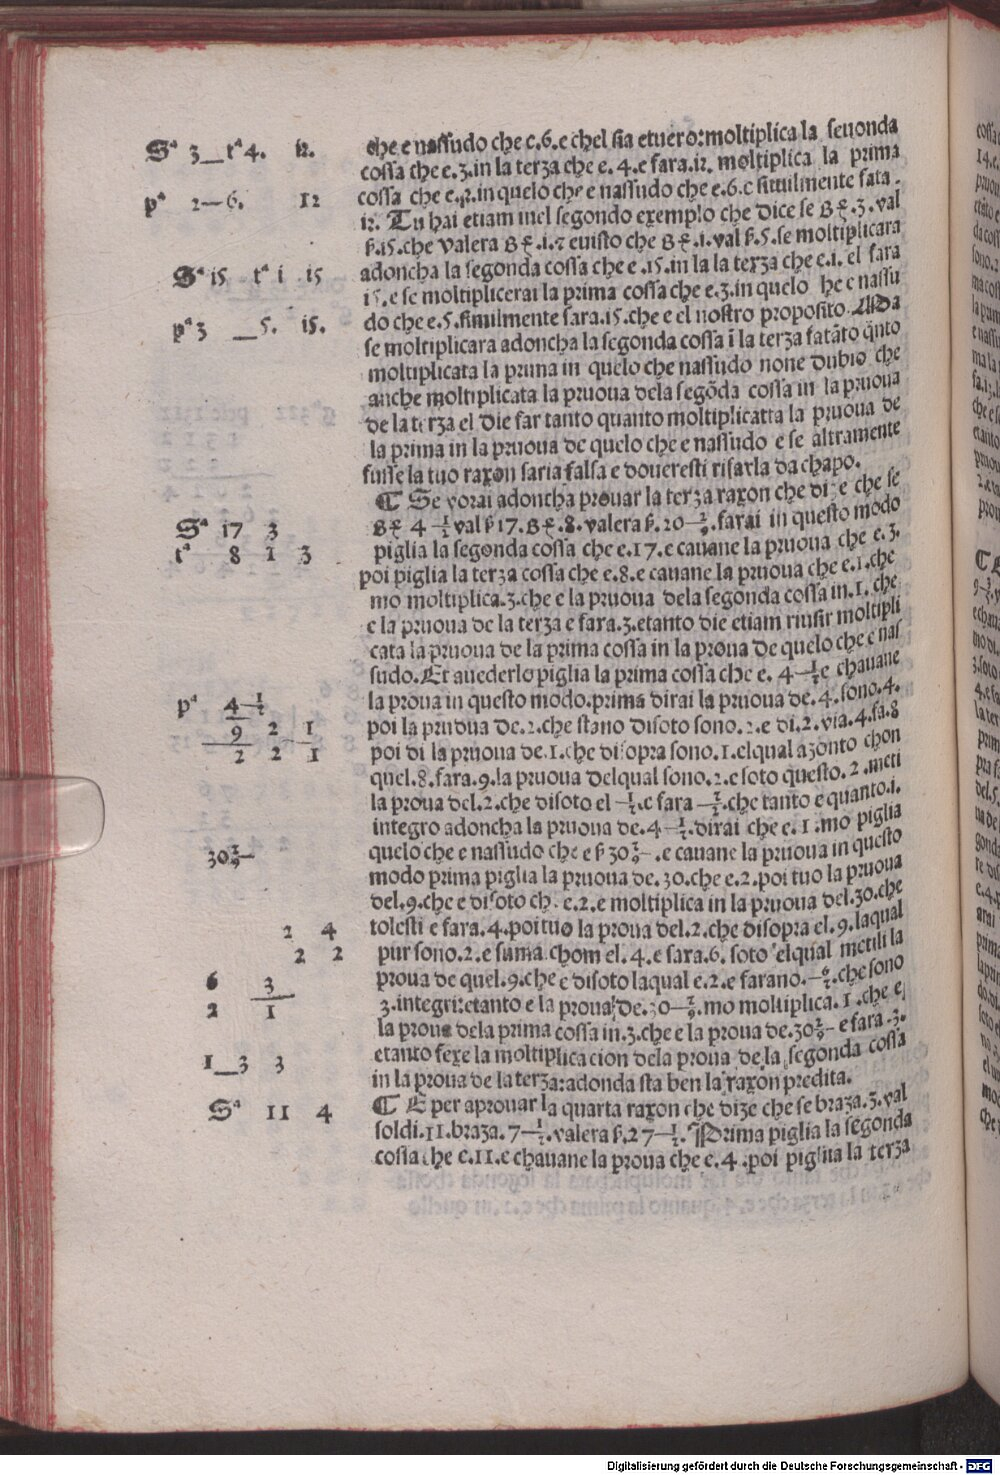 Sª 3__tª4. 12.
pª 2—6. 12
Sª 15 tª 1 15
pª 3 __5. 15.
Sª 17 3
tª 8 1 3
pª 4—½
9 2 1
2 2 1
30 2/9—
2 4
2 2
6 3
2 1
1__3 3
Sª 11 4
che e nassudo che e.6.e chel sia etuero:moltiplica la seuonda
cossa che e.3.in la terza che e.4.e fara.12. moltiplica la prima
cossa che e.2.in quelo che e nassudo che e.6.e simulmente fara
12. Tu hai etiam inel segondo exemplo che dice se .3. val
.15.che valera .1.? euisto che .1.val .5.se moltiplicara
adoncha la segonda cossa che e.15.in la la terza che e.1. el fara
15.e se moltiplicerai la prima cossa che e.3.in quelo he e nassu
do che e.5.simulmente fara.15.che e el nostro proposito. Ma
se moltiplicara adoncha la segonda cossa ī la terza fatāto q̄nto
moltiplicata la prima in quelo che nassudo none dubio che
anche moltiplicata la pruoua dela segōda cossa in la pruoua
de la terza el die far tanto quanto moltiplicatta la pruoua de
la prima in la pruoua de quelo che e nassudo e se altramente
fusse la tuo raxon saria falsa e doueresti rifarla da chapo.
¶ Se vorai adoncha prouar la terza raxon che dize che se
4—½ val 17. .8. valera .20—2/9.farai in questo modo
piglia la segonda cossa che e.17.e cauane la pruoua che e.3.
poi piglia la terza cossa che e.8.e cauane la pruoua che e.1.che
mo moltiplica.3.che e la pruoua dela segonda cossa in.1.che
e la pruoua de la terza e fara.3.etanto die etiam riusir moltipli
cata la pruoua de la prima cossa in la proua de quelo che e nas
sudo.Et auederlo piglia la prima cossa che e. 4—½e chauane
la proua in questo modo.prima dirai la pruoua de.4.sono.4.
poi la pruoua de.2.che stano disoto sono.2.e di.2.via.4.fa.8
poi di la pruoua de.1.che disopra sono.1.elqual azonto chon
quel.8.fara.9.la pruoua delqual sono.2.e soto questo.2.meti
la proua del.2.che disoto el —½.e fara —2/2.che tanto e quanto.1.
integro adoncha la pruoua de.4—½.dirai che e.1.mo piglia
quelo che e nassudo che e 30 2/9—.e cauane la pruoua in questo
modo prima piglia la pruoua de.30.che e.2.poi tuo la pruoua
del.9.che e disoto ch. e.2.e moltiplica in la pruoua del.30.che
tolesti e fara.4.poi tuo la proua del.2.che disopra el.9.laqual
pur sono.2.e suma chom el.4.e fara.6. soto elqual metili la
proua de quel.9.che e disoto laqual e.2.e farano.—6/2.che sono
3.integri:etanto e la proua de.30—2/9.mo moltiplica.1.che e
la proua dela prima cossa in.3.che e la proua de.30 2/9—e fara.3.
etanto fexe la moltiplicacion dela proua de la segonda cossa
in la proua de la terza:adonda sta ben la raxon predita.
¶ E per aprouar la quarta raxon che dize che se braza.3.val
soldi.11.braza.7—½.valera .27—½.Prima piglia la segonda
cossa che e.11.e chauane la proua che e.4.poi piglita la terza
Digitalisierung gefördert durch die Deutsche Forschungsgemeinschaft - DFG